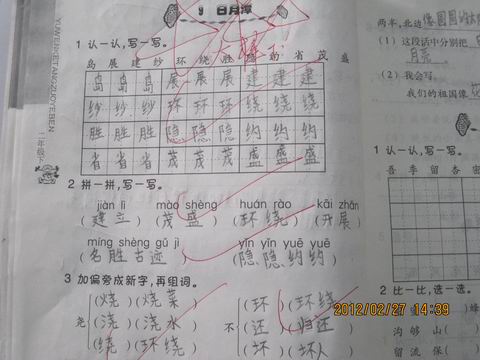 9 日月潭
1 认一认,写一写。
岛 展 建 纱 环 绕 胜 隐 约 省 茂 盛
岛 岛 岛 展 展 展 建 建 建
纱 纱 纱 环 环 环 绕 绕 绕
胜 胜 胜 隐 隐 隐 约 约 约
省 省 省 茂 茂 茂 盛 盛 盛
2 拼一拼,写一写。
jiàn lì mào shèng huán rào kāi zhǎn
(建立) (茂盛) (环绕) (开展)
míng shèng gǔ jì yǐn yǐn yuē yuē
(名胜古迹) (隐隐约约)
3 加偏旁成新字,再组词。
尧 (烧)(烧菜) 不 (环)(环绕)
(浇)(浇水) (还)(归还)
(绕)(环绕) (坏)(坏人)
YUWENKETANGZUOYEBEN
二年级下
两半,北边像圆圆的太
(1) 这段话中分别把
月亮
(2) 我会写。
我们的祖国像花
1 认一认,写一写。
吾 季 留 杏 密
2 比一比,选一选。
沟 够 山(
2012/02/27 14:39